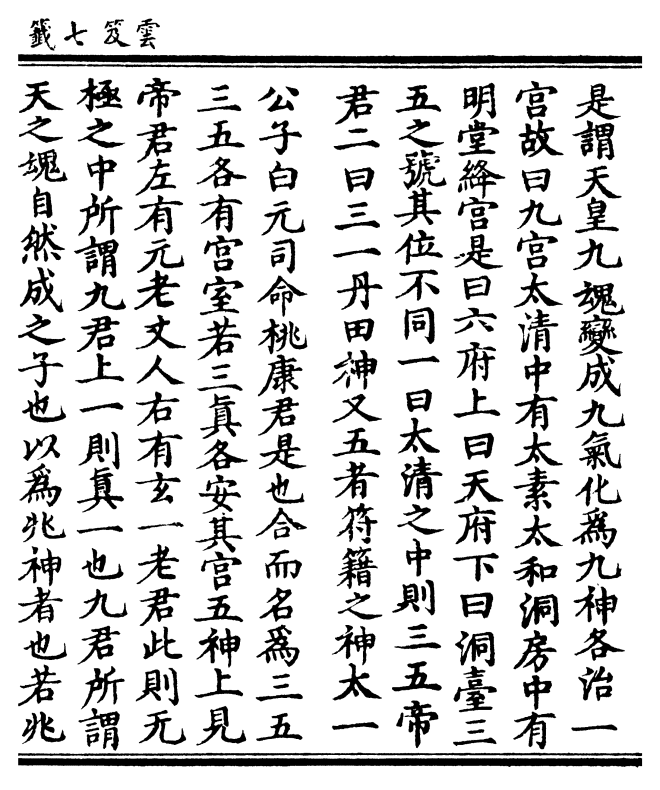 雲笈七籤
是謂天皇九魂變成九氣化爲九神各治一
宮故曰九宮太清中有太素太和洞房中有
明堂絳宮是曰六府上曰天府下曰洞臺三
五之號其位不同一曰太清之中則三五帝
君二曰三一丹田神又五者符籍之神太一
公子白元司命桃康君是也合而名爲三五
三五各有宮室若三眞各安其宮五神上見
帝君左有元老丈人右有玄一老君此則无
極之中所謂九君上一則眞一也九君所謂
天之魂自然成之子也以爲兆神者也若兆